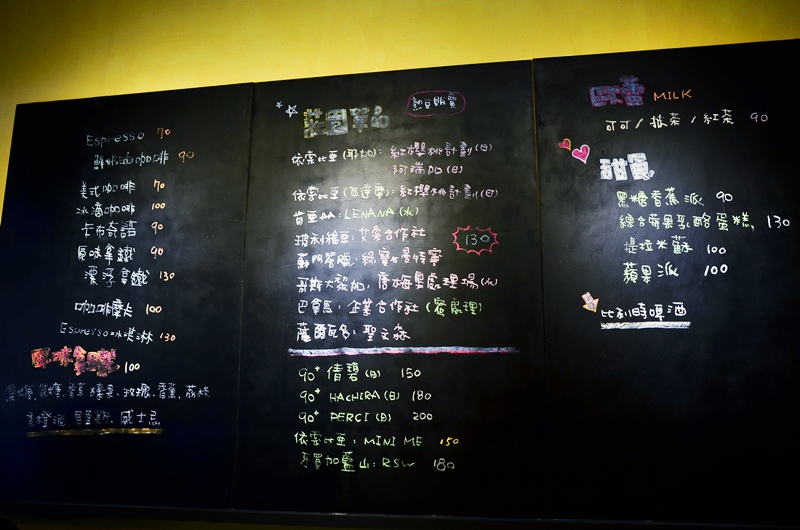 Espresso 70
鮮奶油咖啡 90
美式咖啡 70
冰滴咖啡 100
卡布奇諾 90
原味拿鐵 90
漂浮拿鐵 130
咖啡摩卡 100
Espresso冰淇淋 130
100
香橙酒、貝里斯、威士忌
莊園單品
熱豆販賣
依索比亞(耶加):紅櫻桃計劃(日)
阿瑞加(日)
依索比亞(西達摩):紅櫻桃計劃(日)
肯亞AA:LENANA(水)
玻利維亞:艾索合作社
130
蘇門答臘:綠寶石曼特寧
哥斯大黎加:處理場(水)
巴拿馬:企業合作社(蜜處理)
薩爾瓦多:聖文森
90+ 倩碧(日) 150
90+ HACHIRA(日) 180
90+ PERCI(日) 200
依索比亞:MINI ME 150
牙買加藍山:RSW 180
MILK
可可/抹茶/紅茶 90
甜頁
黑糖香蕉派 90
綜合莓果乳酪蛋糕 130
提拉米蘇 100
蘋果派 100
比利時啤酒